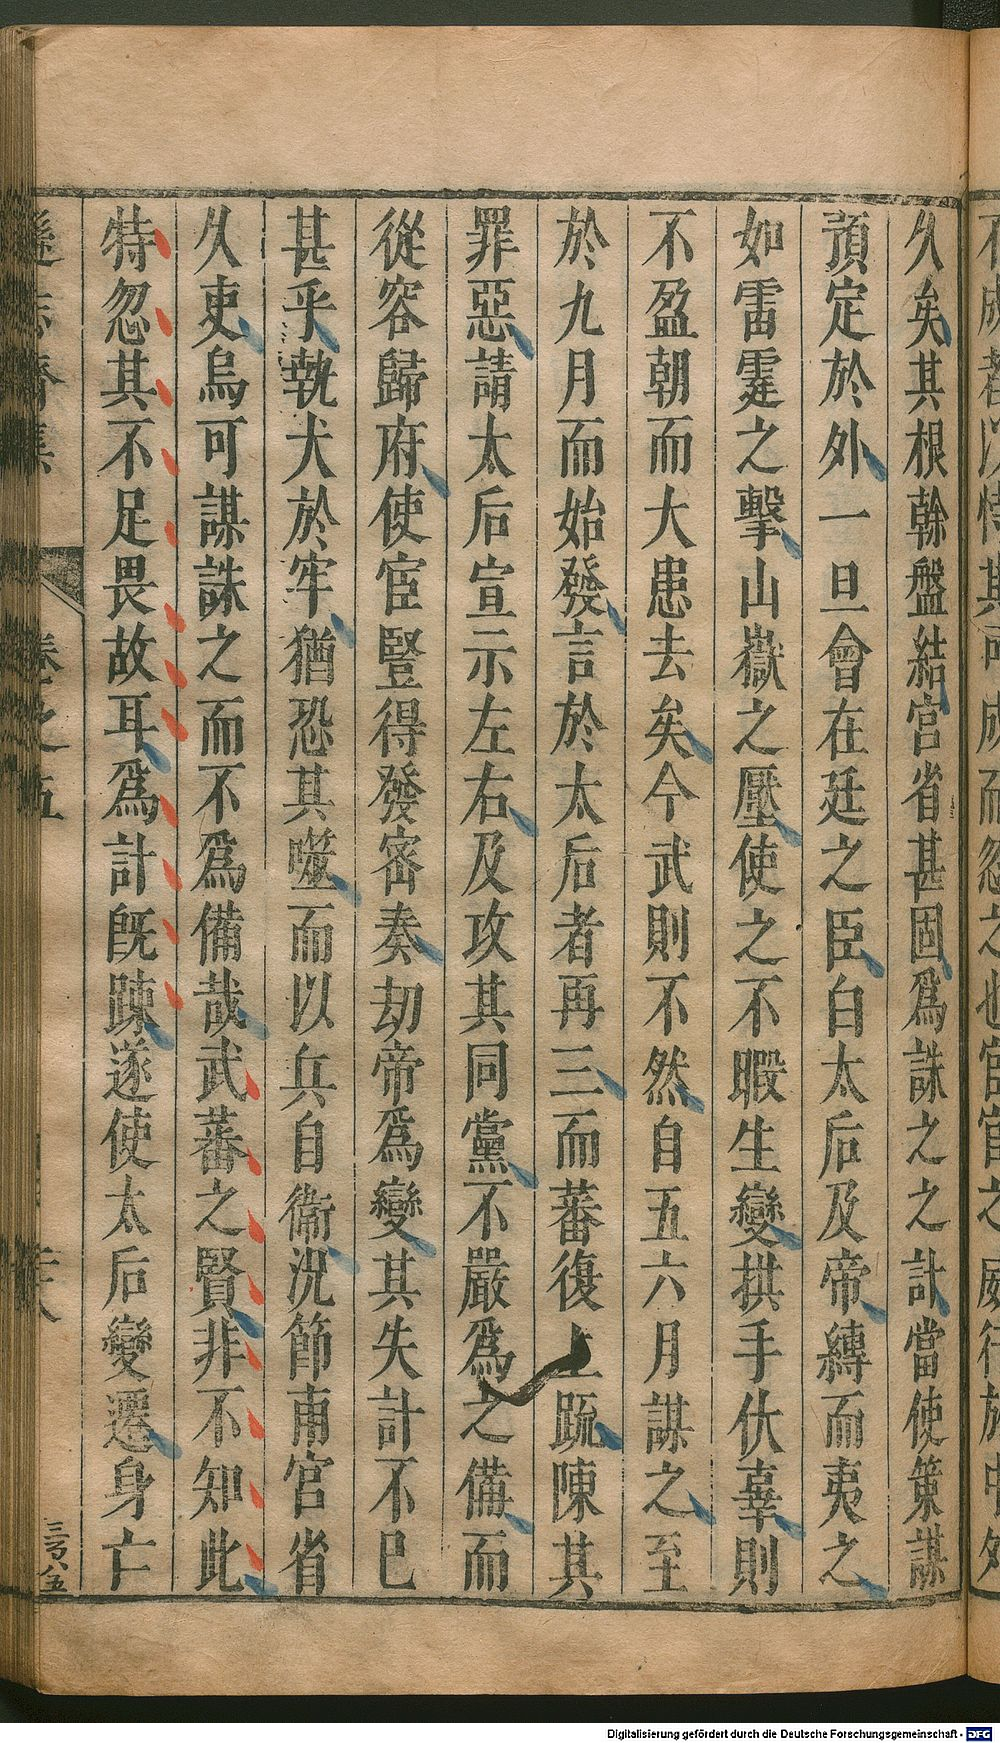 久矣其根幹盤結宮省甚固爲誅之之計當使策謀
預定於外一旦會在廷之臣白太后及帝縛而夷之
如雷霆之擊山嶽之壓使之不暇生變拱手伏辜則
不盈朝而大患去矣今武則不然自五六月謀之至
於九月而始發言於太后者再三而蕃復上疏陳其
罪惡請太后宣示左右及攻其同黨不嚴爲之備而
從容歸府使宦豎得發密奏劫帝爲變其失計不已
甚乎執犬於牢猶恐其噬而以兵自衛況節甫宮省
久吏烏可謀誅之而不爲備哉武蕃之賢非不知此
特忽其不足畏故耳爲計旣踈遂使太后變遷身亡
遜志齋集
卷之五
三八五
Digitalisierung gefördert durch die Deutsche Forschungsgemeinschaft - DFG